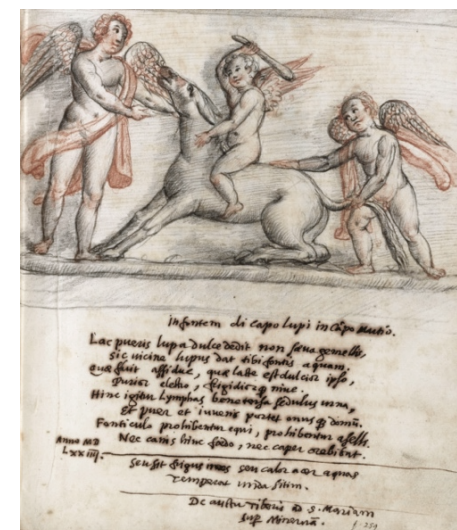 In fontem di capo lupi in Cāpo Martio.
Lac pueris lupa dulce dedit non saeva gemellis,
sic vicine lupus dat tibi fontis aquam.
quae fluit assidue, quae lacte est dulcior ipso,
Purior electro, frigidior q̄ nive.
Hinc igitur lymphas bene tersa sedulus urna,
Et puer et iuvenis portet onus q̄ domū.
Fonticulo prohibentur equi, prohibentur aselli.
Nec canis hinc foedo, nec caper ore bibit.
Anno MD
LXXIIII.
seu sit frigus iners seu calor acer aquas
temperat unda sitim.
De auctu Tiberis ad S. Mariam
sup Minervā.